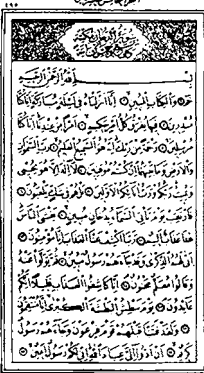 ٤٩٥
بسم الله الرحمن الرحيم
حم والكتاب المبين انا انزلناه في ليلة مباركة انا كنا
منذرين فيها يفرق كل امر حكيم امرا من عندنا انا كنا
مرسلين رحمة من ربك انه هو السميع العليم رب السموات
والارض وما بينهما ان كنتم موقنين لا اله الا هو يحيي
ويميت ربكم ورب ابائكم الاولين بل هم في شك يلعبون
فارتقب يوم تاتي السماء بدخان مبين يغشى الناس
هذا عذاب اليم ربنا اكشف عنا العذاب انا مؤمنون
انى لهم الذكرى وقد جاءهم رسول مبين ثم تولوا عنه
وقالوا معلم مجنون انا كاشفوا العذاب قليلا انكم
عائدون يوم نبطش البطشة الكبرى انا منتقمون
ولقد فتنا قبلهم قوم فرعون وجاءهم رسول
كريم ان ادوا الي عباد الله اني لكم رسول امين